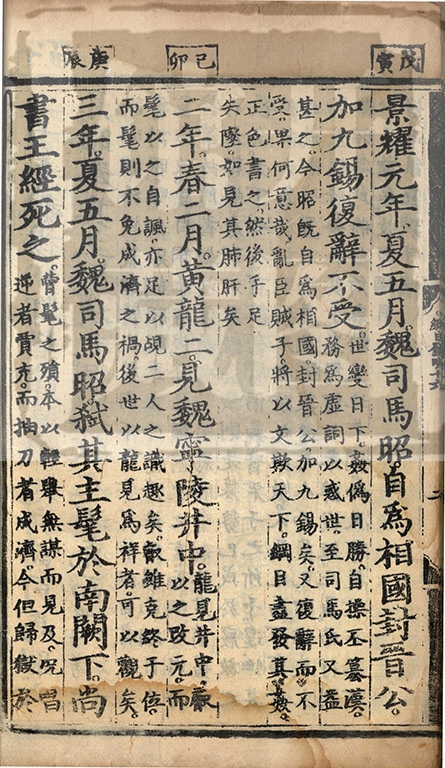 戊寅
景耀元年夏五月魏司馬昭自為相國封晉公
加九錫復辭不受
世變日下姦偽日勝自操丕篡漢
務為虛詞以惑世至司馬氏又益
甚之今昭既自為相國封晉公加九錫矣又復辭而不
受果何意哉亂臣賊子將以文欺天下綱目盡發其姦
正色書之然後手足
失墜如見其肺肝矣
己卯
二年春二月黃龍二見魏寧陵井中
龍見井中叡
以之改元而
髦以之自諷亦足以覘二人之識趣矣叡雖克終于位
而髦則不免成濟之禍後世以龍見為祥者可以觀矣
庚辰
三年夏五月魏司馬昭弒其主髦於南闕下尚
書王經死之
曹髦之殞本以輕舉無謀而見及況
逆者賈充而抽刀者成濟今但歸獄於